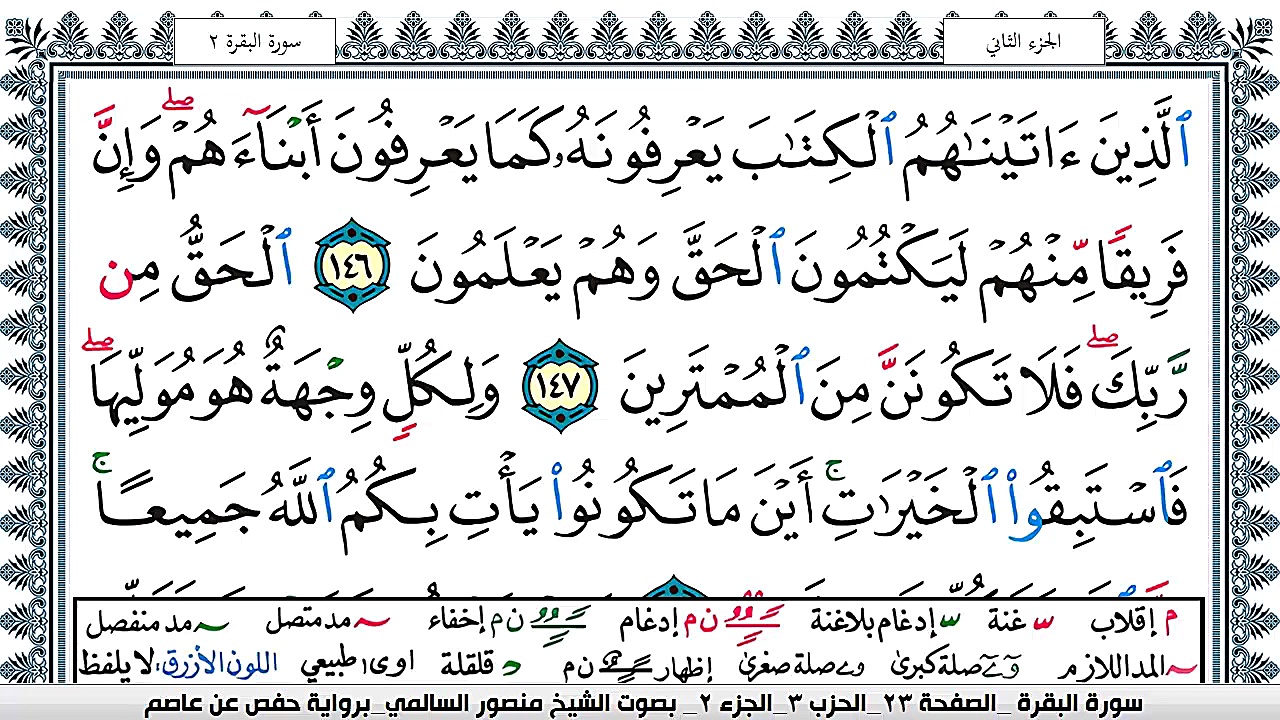 سورة البقرة ٢
الجزء الثاني
ٱلَّذِينَ ءَاتَيْنَٰهُمُ ٱلْكِتَٰبَ يَعْرِفُونَهُۥ كَمَا يَعْرِفُونَ أَبْنَآءَهُمْ ۖ وَإِنَّ
فَرِيقًا مِّنْهُمْ لَيَكْتُمُونَ ٱلْحَقَّ وَهُمْ يَعْلَمُونَ ١٤٦ ٱلْحَقُّ مِن
رَّبِّكَ ۖ فَلَا تَكُونَنَّ مِنَ ٱلْمُمْتَرِينَ ١٤٧ وَلِكُلٍّ وِجْهَةٌ هُوَ مُوَلِّيهَا ۖ
فَٱسْتَبِقُوا۟ ٱلْخَيْرَٰتِ ۚ أَيْنَ مَا تَكُونُوا۟ يَأْتِ بِكُمُ ٱللَّهُ جَمِيعًا ۚ
م إقلاب غنة إدغام بلاغنة ن م إدغام ن م إخفاء مد متصل مد منفصل
المد اللازم صلة كبرى صلة صغرى إظهار ن م قلقلة اوى طبيعي اللون الأزرق: لا يلفظ
سورة البقرة _الصفحة ٢٣_الحزب ٣_الجزء ٢_ بصوت الشيخ منصور السالمي_برواية حفص عن عاصم